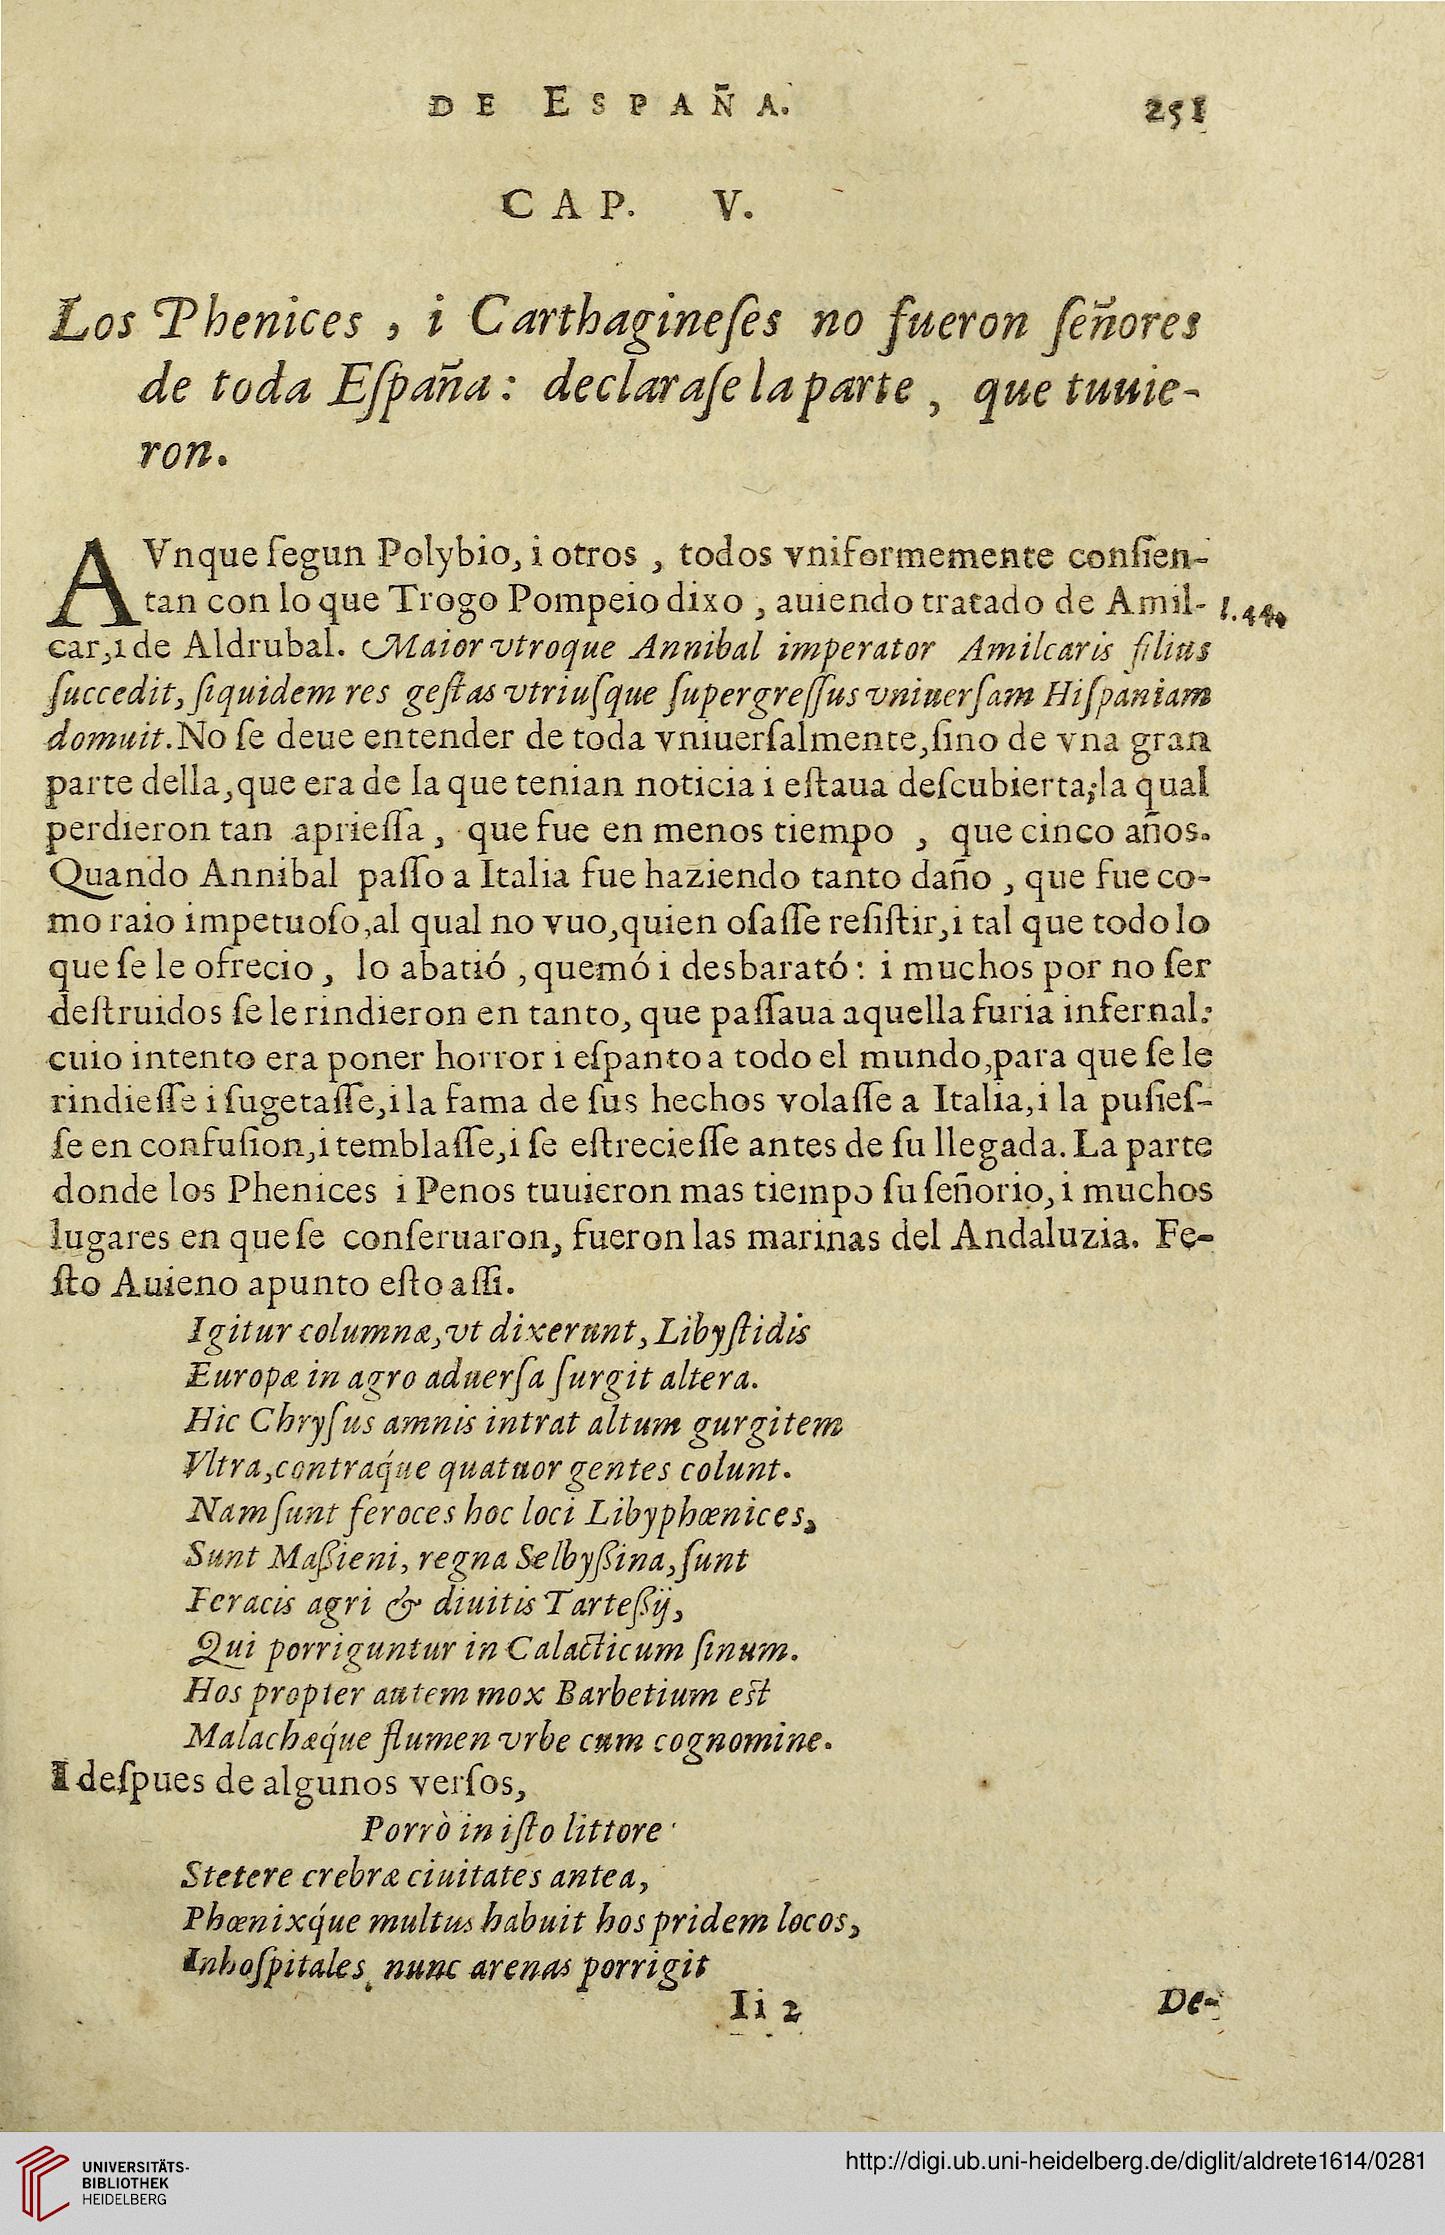 DE ESPAÑA. 251
CAP. V.
Los Phenices, i Carthagineſes no fueron ſeñores
de toda Eſpaña: declaraſe la parte, que tuuie-
ron.
AVnque ſegun Polybio, i otros, todos vniformemente conſien-
tan con lo que Trogo Pompeio dixo, auiendo tratado de Amil- l.44.
car, i de Aldrubal. Maior vtroque Annibal imperator Amilcaris filius
ſuccedit, ſiquidem res geſtas vtriuſque ſupergreſſus vniuerſam Hiſpaniam
domuit. No ſe deue entender de toda vniuerſalmente, ſino de vna gran
parte della, que era de la que tenian noticia i eſtaua deſcubierta; la qual
perdieron tan aprieſſa, que fue en menos tiempo, que cinco años.
Quando Annibal paſſo a Italia fue haziendo tanto daño, que fue co-
mo raio impetuoſo, al qual no vuo, quien oſaſſe reſiſtir, i tal que todo lo
que ſe le ofrecio, lo abatió, quemó i desbarató: i muchos por no ſer
deſtruidos ſe le rindieron en tanto, que paſſaua aquella furia infernal:
cuio intento era poner horror i eſpanto a todo el mundo, para que ſe le
rindieſſe i ſugetaſſe, i la fama de ſus hechos volaſſe a Italia, i la puſieſ-
ſe en confuſion, i temblaſſe, i ſe eſtrecieſſe antes de ſu llegada. La parte
donde los Phenices i Penos tuuieron mas tiempo ſu ſeñorio, i muchos
lugares en que ſe conſeruaron, fueron las marinas del Andaluzia. Fe-
ſto Auieno apunto eſto aſſi.
Igitur columnæ, vt dixerunt, Libyſtidis
Europæ in agro aduerſa ſurgit altera.
Hic Chryſus amnis intrat altum gurgitem
Vltra, contraq́ue quatuor gentes colunt.
Nam ſunt feroces hoc loci Libyphœnices,
Sunt Maßieni, regna Selbyßina, ſunt
Feracis agri & diuitis Tarteßij,
Qui porriguntur in Calacticum ſinum.
Hos propter autem mox Barbetium eſt
Malachæq́ue flumen vrbe cum cognomine.
I deſpues de algunos verſos,
Porrò in iſto littore
Stetere crebræ ciuitates antea,
Phœnixq́ue multus habuit hos pridem locos,
Inhoſpitales nunc arenas porrigit
Ii 2 De-
UNIVERSITÄTS-
BIBLIOTHEK
HEIDELBERG
http://digi.ub.uni-heidelberg.de/diglit/aldrete1614/0281